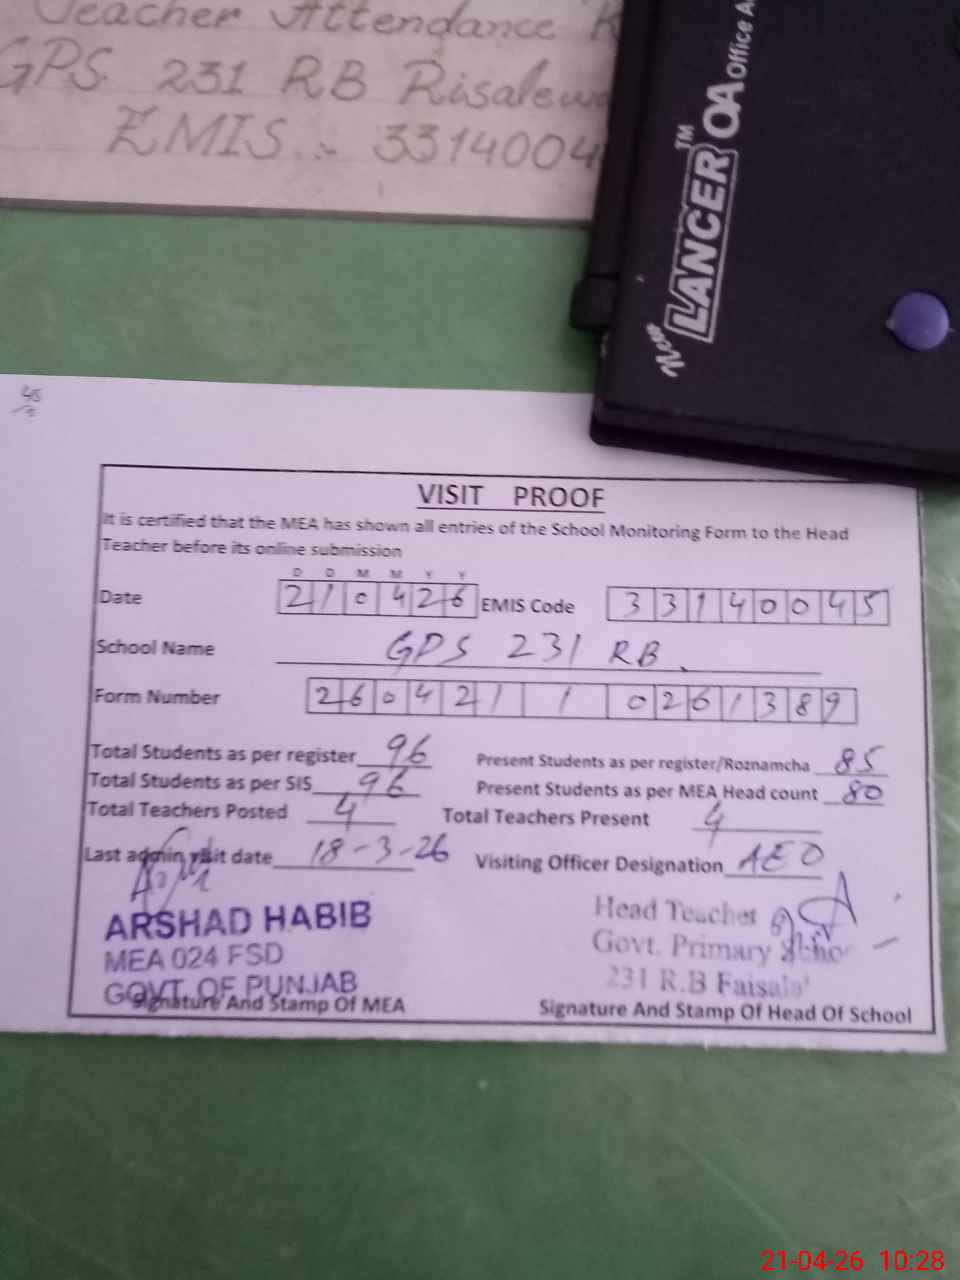 Teacher Attendance
GPS 231 RB
EMIS :- 3314004
New LANCER™ OA Office
45
VISIT PROOF
It is certified that the MEA has shown all entries of the School Monitoring Form to the Head
Teacher before its online submission
D D M M Y Y
Date 210426 EMIS Code 33140045
School Name GPS 231 RB.
Form Number 260421 1 0261389
Total Students as per register 96 Present Students as per register/Roznamcha 85
Total Students as per SIS 96 Present Students as per MEA Head count 80
Total Teachers Posted 4 Total Teachers Present 4
Last admin visit date 18-3-26 Visiting Officer Designation AEO
ARSHAD HABIB
MEA 024 FSD
GOVT. OF PUNJAB
Signature And Stamp Of MEA
Head Teacher
Govt. Primary
231 R.B
Signature And Stamp Of Head Of School
21-04-26 10:28